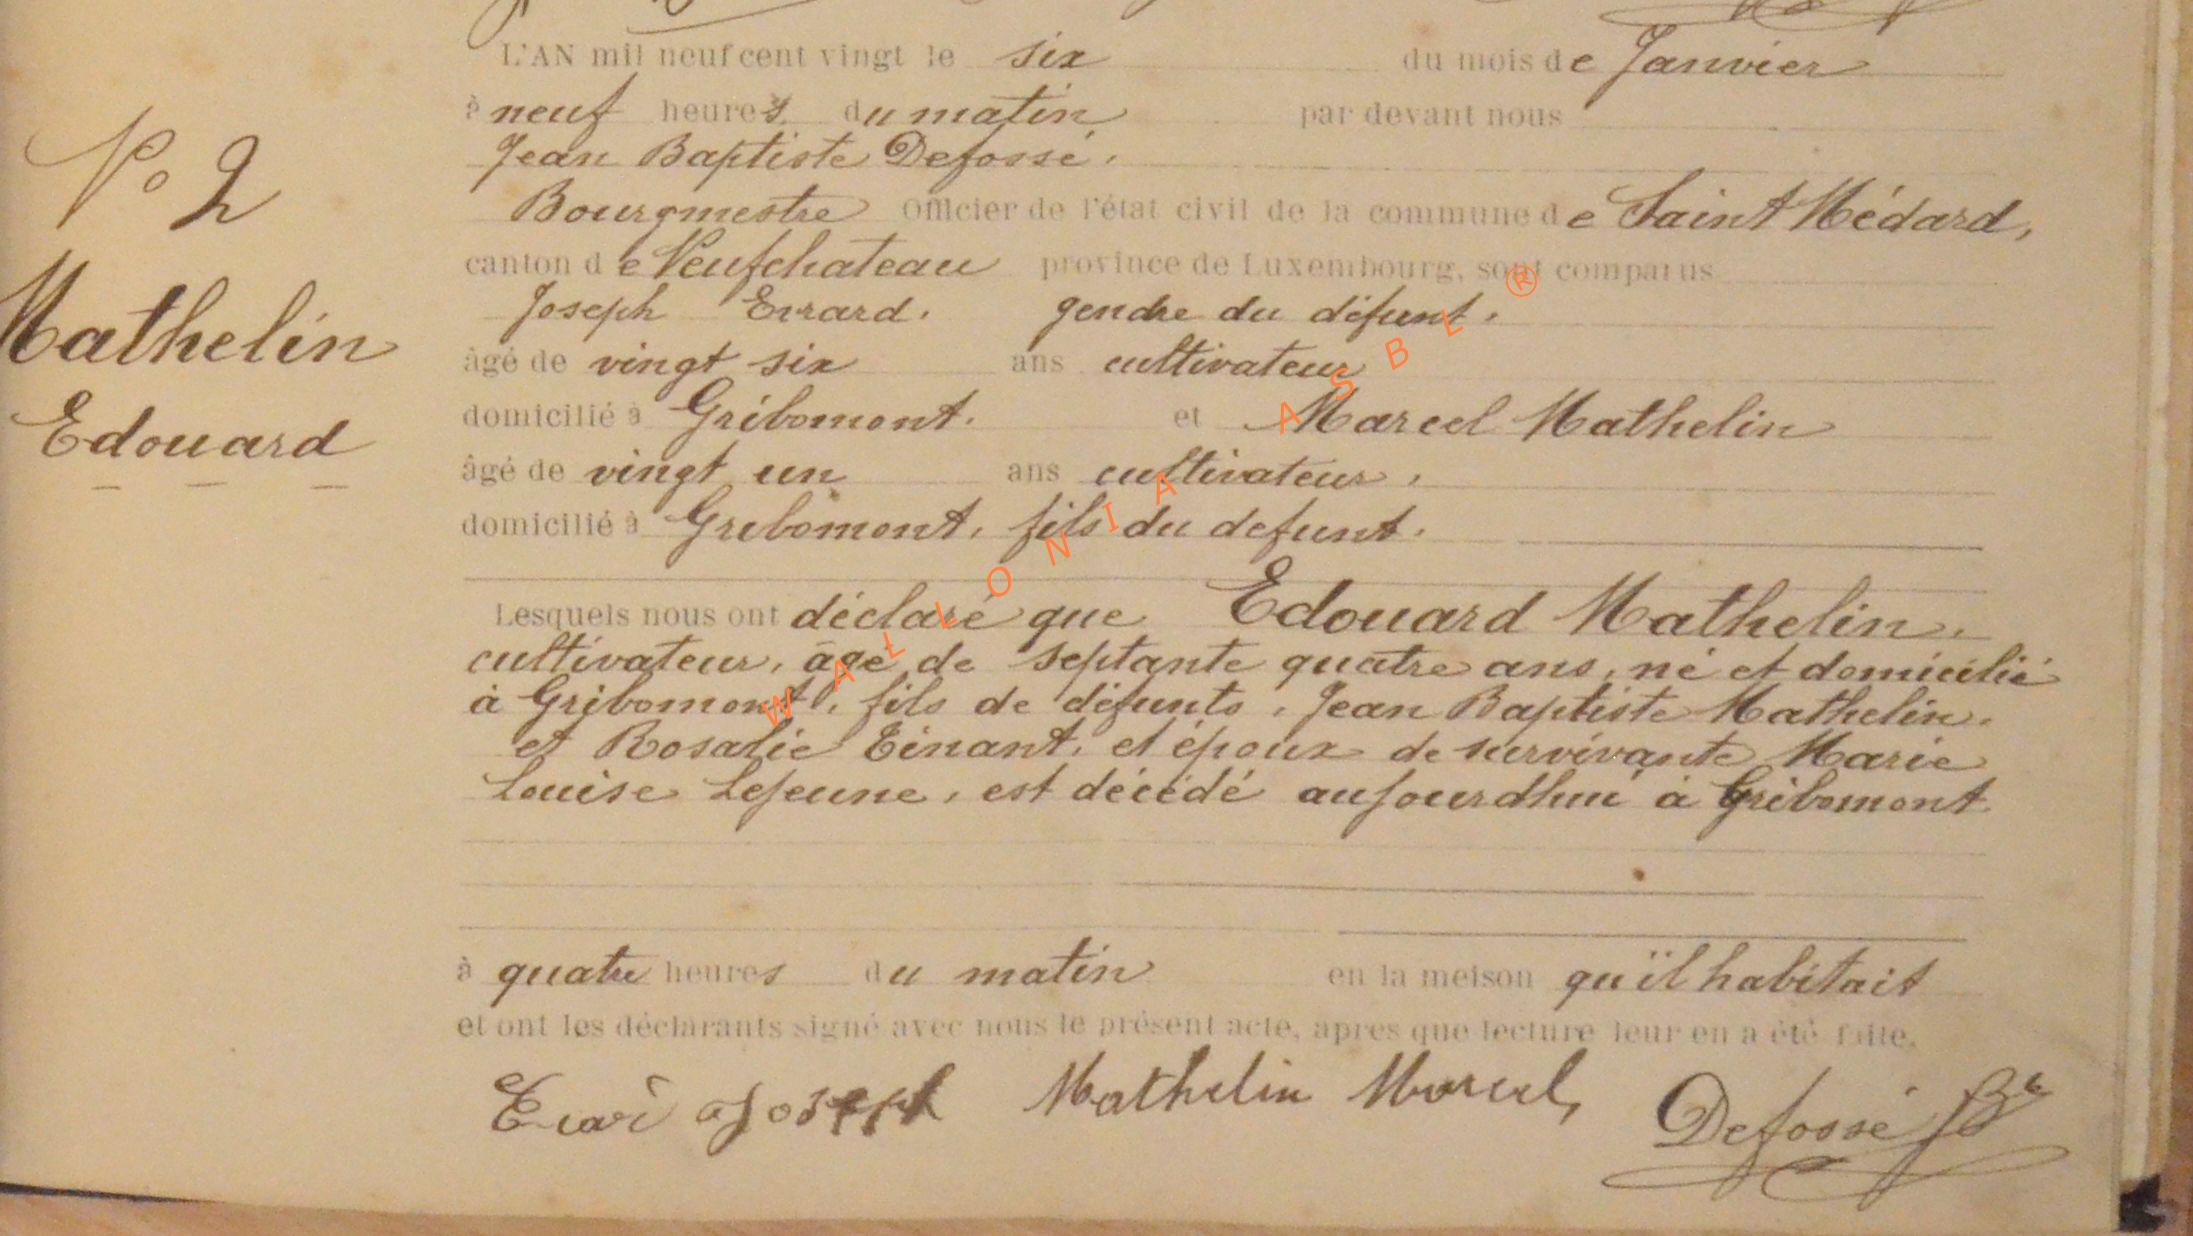 N° 2
Mathelin
Edouard
L'AN mil neuf cent vingt le six du mois de Janvier
à neuf heures du matin par devant nous
Jean Baptiste Defossé.
Bourgmestre Officier de l'état civil de la commune de Saint Médard,
canton de Neufchateau province de Luxembourg, sont comparus
Joseph Evrard. gendre du défunt.
âgé de vingt six ans cultivateur
domicilié à Gribomont. et Marcel Mathelin
âgé de vingt un ans cultivateur,
domicilié à Gribomont, fils du defunt.
Lesquels nous ont déclaré que Edouard Mathelin,
cultivateur, âgé de septante quatre ans, né et domicilié
à Gribomont, fils de défunts, Jean Baptiste Mathelin.
et Rosalie Tinant, et époux de survivante Marie
Louise Lejeune, est décédé aujourdhui à Gribomont
à quatre heures du matin en la meison qu'il habitait
et ont les déclarants signé avec nous le présent acte, apres que lecture leur en a été faite.
Joseph Mathelin Marcel, Defossé JB
WALLONIA ASBL ®